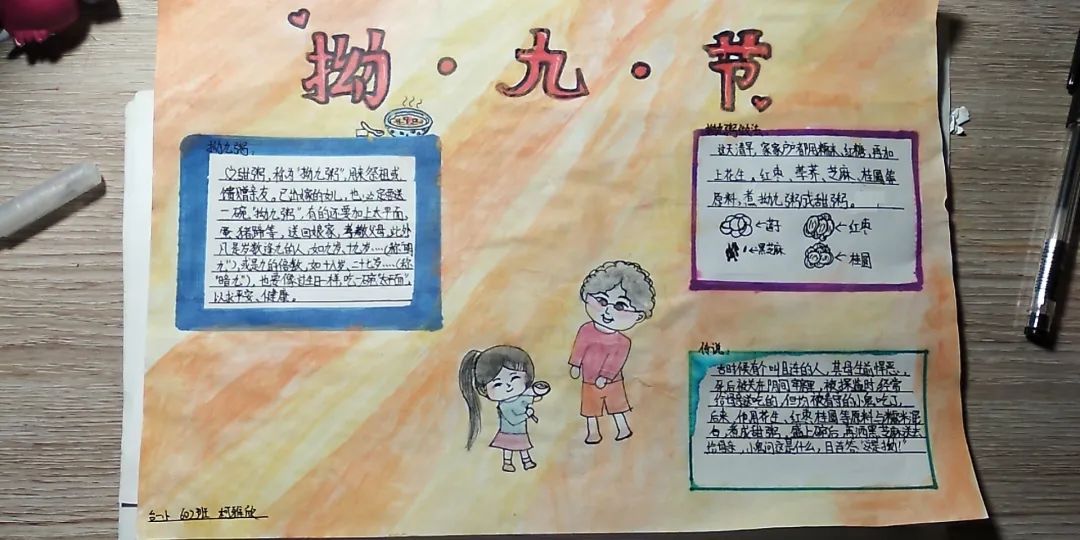 拗·九·节
拗九粥:
心甜粥,称为"拗九粥",用来祭祖或
馈赠亲友。已出嫁的女儿,也必定要送
一碗"拗九粥",有的还要加上太平面、
蛋、猪蹄等,送回娘家,孝敬父母,此外
凡是岁数逢九的人,如九岁、十九岁……(称"明
九"),或是九的倍数,如十八岁、二十七岁……(称
"暗九"),也要像过生日一样,吃一碗"太平面",
以求平安、健康。
拗九粥做法:
这天清早,家家户户都用糯米、红糖,再加
上花生、红枣、荸荠、芝麻、桂圆等
原料,煮拗九粥或甜粥。
←红枣
←黑芝麻
←桂圆
传说:
古时候有个叫目连的人,其母生前悭恶,
死后被关在阴间牢狱里,被探监时,经常
给母亲送吃的,但均被看守的小鬼吃了,
后来,他用花生、红枣、桂圆等原料与糯米混
为,煮成甜粥,盛上碗后,再洒黑芝麻送去
给母亲,小鬼问这是什么,目连答"这是拗!"
602班